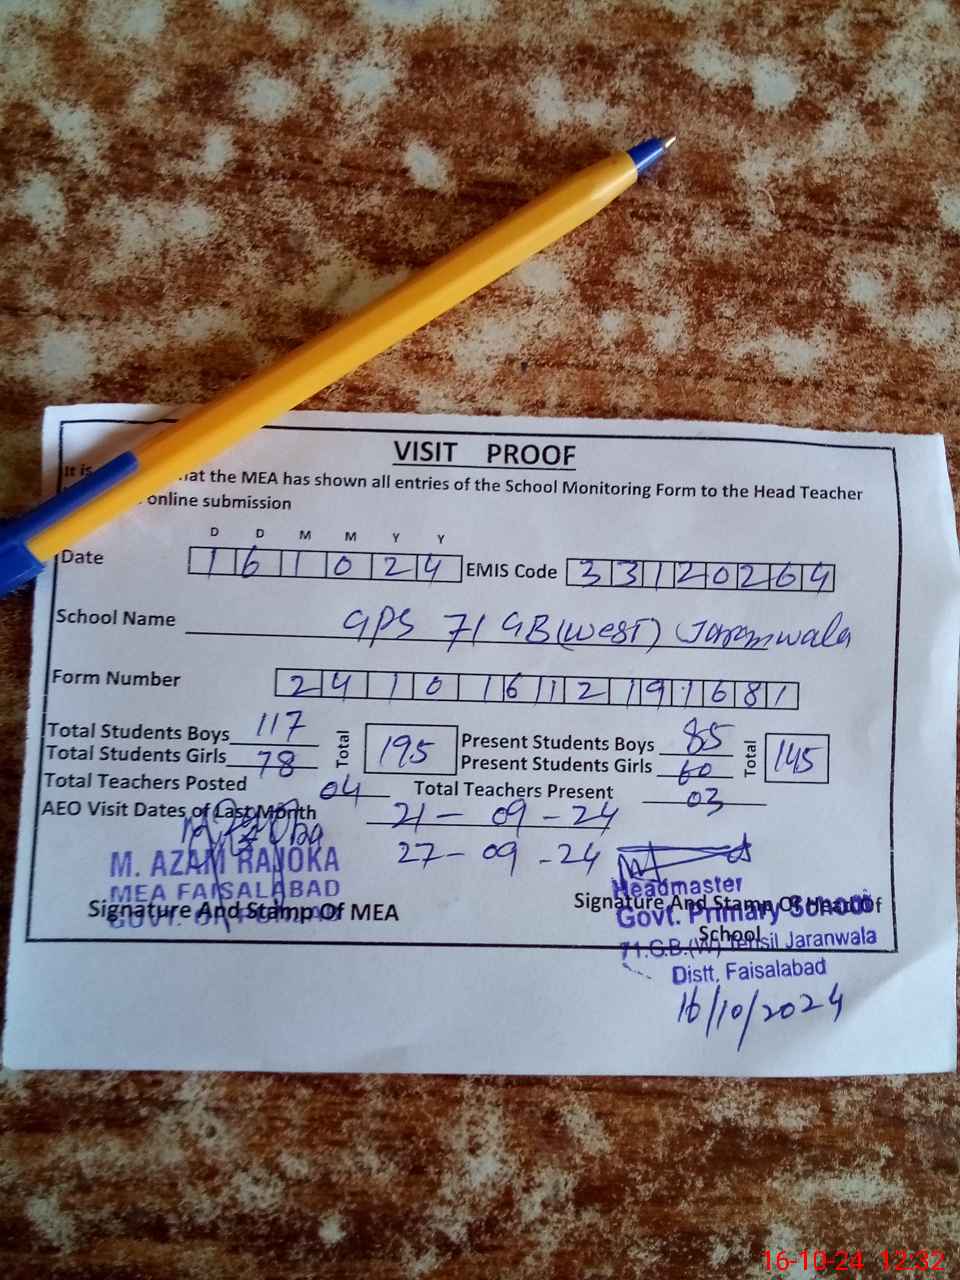 VISIT PROOF
It is
at the MEA has shown all entries of the School Monitoring Form to the Head Teacher
online submission
D D M M Y Y
Date 1 6 1 0 2 4 EMIS Code 3 3 1 2 0 2 6 4
School Name GPS 71 GB (West) Jaranwala
Form Number 2 4 1 0 1 6 1 2 1 9 1 6 8 1
Total Students Boys 117 Total 195 Present Students Boys 85 Total 145
Total Students Girls 78 Present Students Girls 60
Total Teachers Posted 04 Total Teachers Present 03
AEO Visit Dates of Last Month 21-09-24
27-09-24
M. AZAM RANJOKA
MEA FAISALABAD
Signature And Stamp Of MEA
Headmaster
Signature And Stamp Of Head of
Govt. Primary School
School
71.G.B.(W) Tehsil Jaranwala
Distt. Faisalabad
16/10/2024
16-10-24 12:32